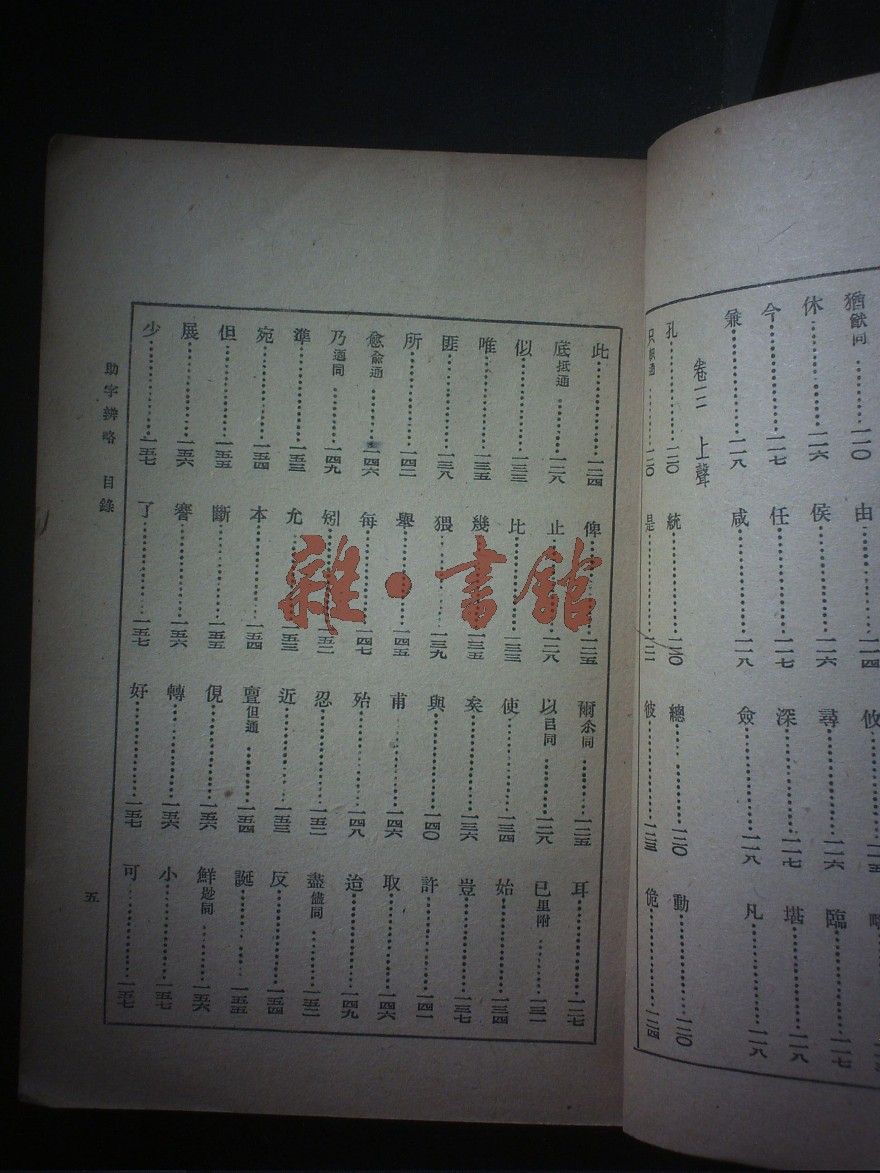 猶猷同……一一〇　由……一一四　攸
休……一一六　侯……一一六　尋……一一六　臨……一一七
今……一一七　任……一一七　深……一一七　堪……一一八
兼……一一八　咸……一一八　僉……一一八　凡……一一八
卷三　上聲
孔……一二〇　統……一二〇　總……一二〇　動……一二〇
只……一二〇　是……一二一　彼……一二三　佹……一二四
此……一二四　俾……一二五　爾尒同……一二五　耳……一二七
底抵通……一二八　止……一二八　以㠯同……一二八　已里附……一三一
似……一三三　比……一三三　使……一三四　始……一三四
唯……一三五　幾……一三五　矣……一三六　豈……一三七
匪……一三八　猥……一三九　與……一四〇　許……一四一
所……一四二　舉……一四五　甫……一四六　取……一四六
愈兪通……一四六　每……一四七　殆……一四八　迨……一四九
乃迺同……一四九　矧……一五二　忍……一五二　盡儘同……一五二
準……一五三　允……一五三　近……一五三　反……一五四
宛……一五四　本……一五四　亶但通……一五四　誕……一五五
但……一五五　斷……一五五　俔……一五六　鮮尟同……一五六
展……一五六　謇……一五六　轉……一五六　小……一五七
少……一五七　了……一五七　好……一五七　可……一五七
助字辨略　目錄
五
雜·書館